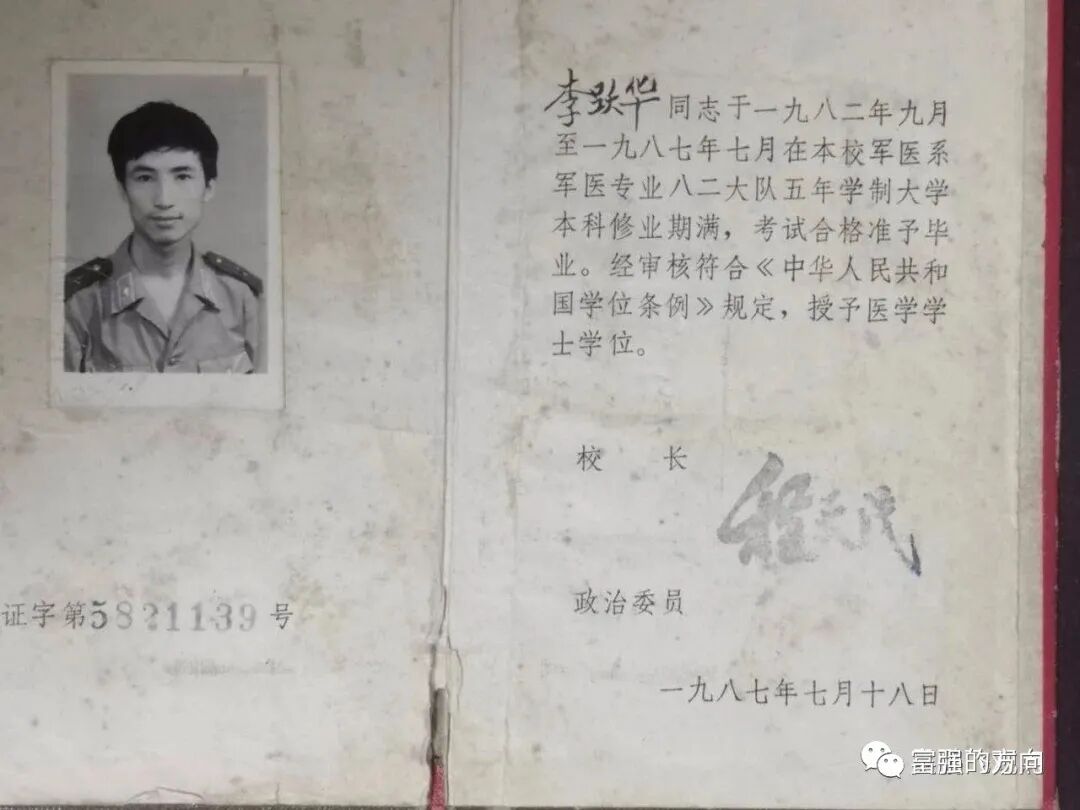 证字第5821139号
李跃华同志于一九八二年九月
至一九八七年七月在本校军医系
军医专业八二大队五年学制大学
本科修业期满，考试合格准予毕
业。经审核符合《中华人民共和
国学位条例》规定，授予医学学
士学位。
校 长 程天民
政治委员
一九八七年七月十八日
富强的方向